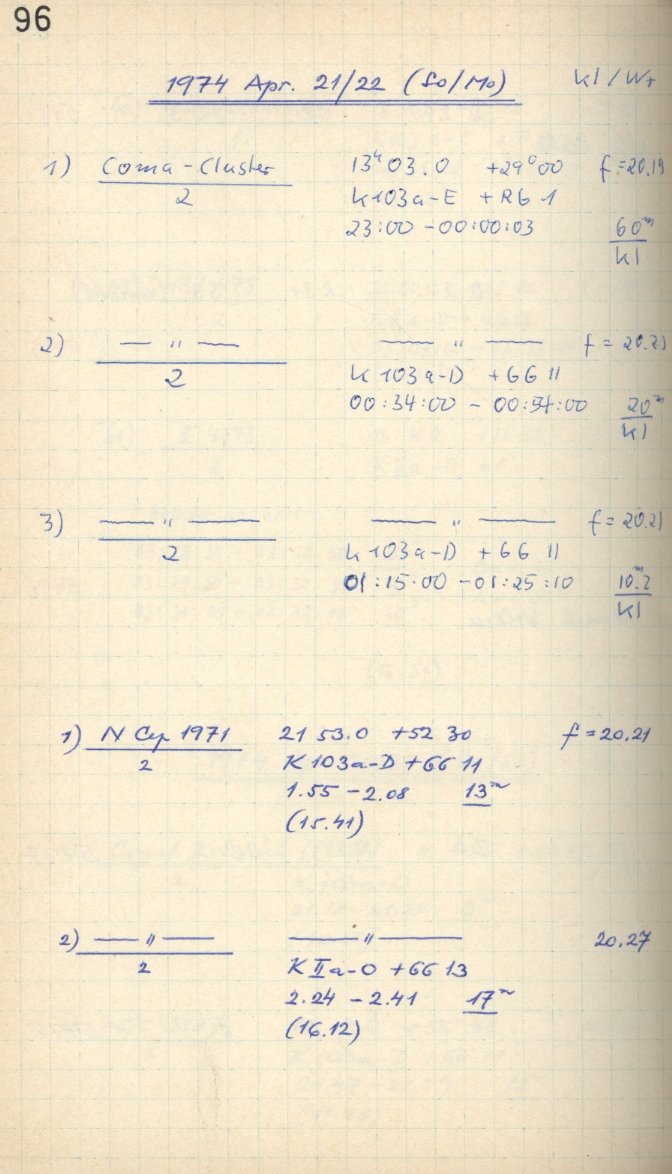 96
1974 Apr. 21/22 (So/Mo) Kl / Wr
1) Coma-Cluster 13h 03.0 +29° 00 f = 20.19
2 K 103a-E + RG 1
23:00 - 00:00:03 60m
Kl
2) — " — — " — f = 20.21
2 K 103a-D + GG 11
00:34:00 - 00:54:00 20m
Kl
3) — " — — " — f = 20.21
2 K 103a-D + GG 11
01:15:00 - 01:25:10 10m.2
Kl
1) N Cyg 1971 21 53.0 +52 30 f = 20.21
2 K 103a-D + GG 11
1.55 - 2.08 13m
(15.41)
2) — " — — " — 20.27
2 K IIa-O + GG 13
2.24 - 2.41 17m
(16.12)